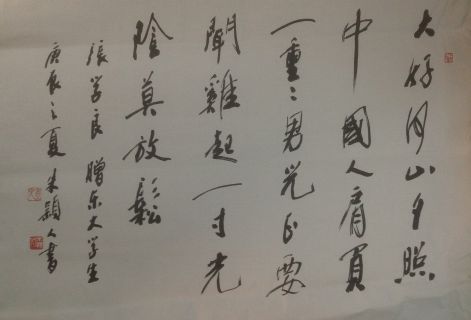 大好河山夕照
中國人肩負
一重〻男兒正要
聞雞起一寸光
陰莫放鬆
張学良贈东大学生
庚辰之夏朱穎人書